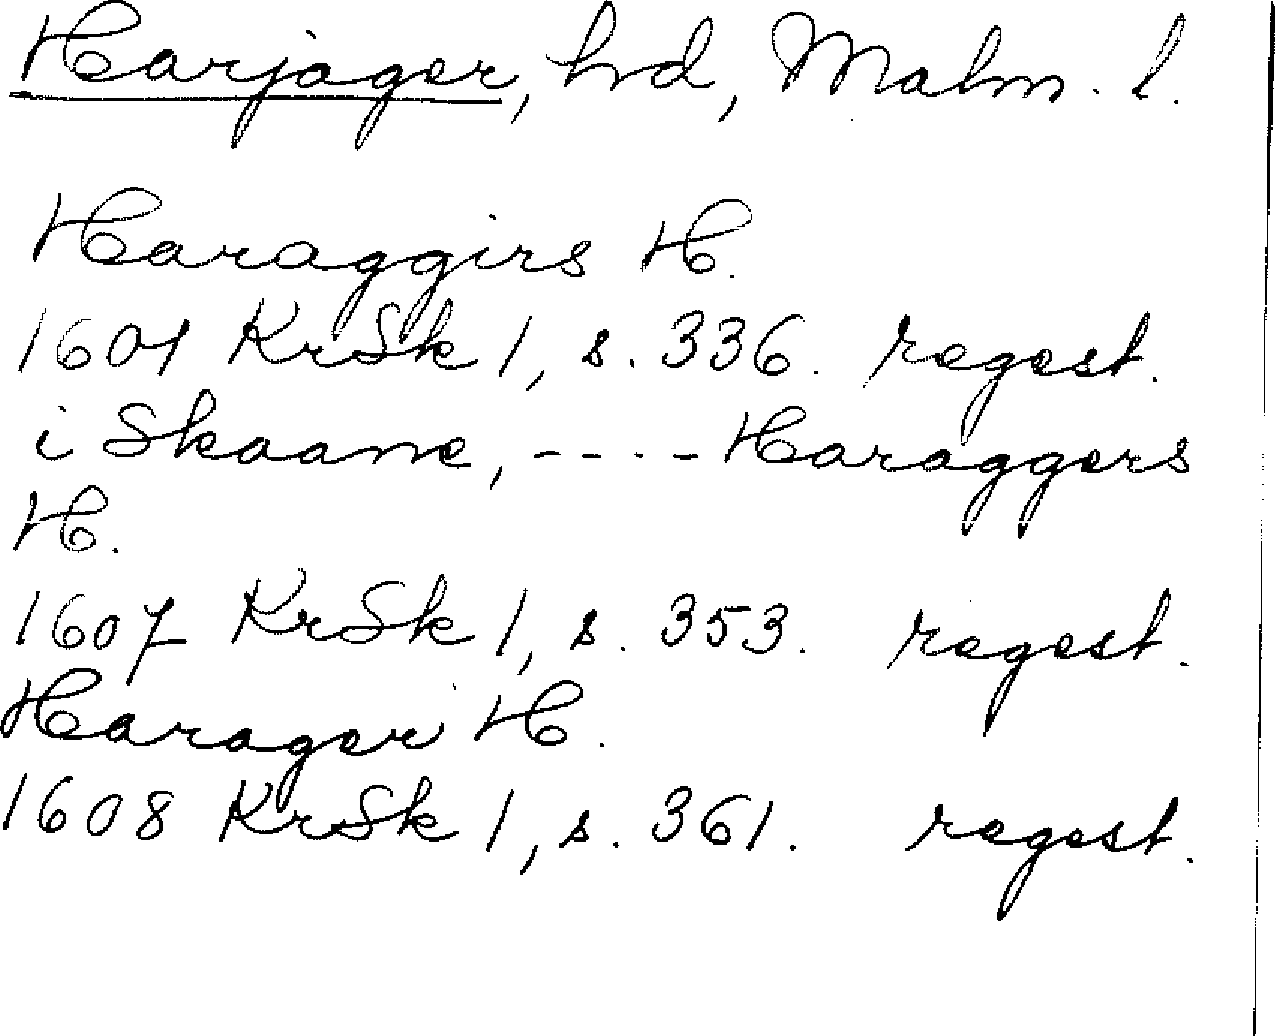 Harjager, hrd, Malm. l.
Haraggirs H.
1601 KrSk 1, s. 336. regest.
i Skaane, ---- Haraggers
H.
1607 KrSk 1, s. 353. regest.
Harager H.
1608 KrSk 1, s. 361. regest.